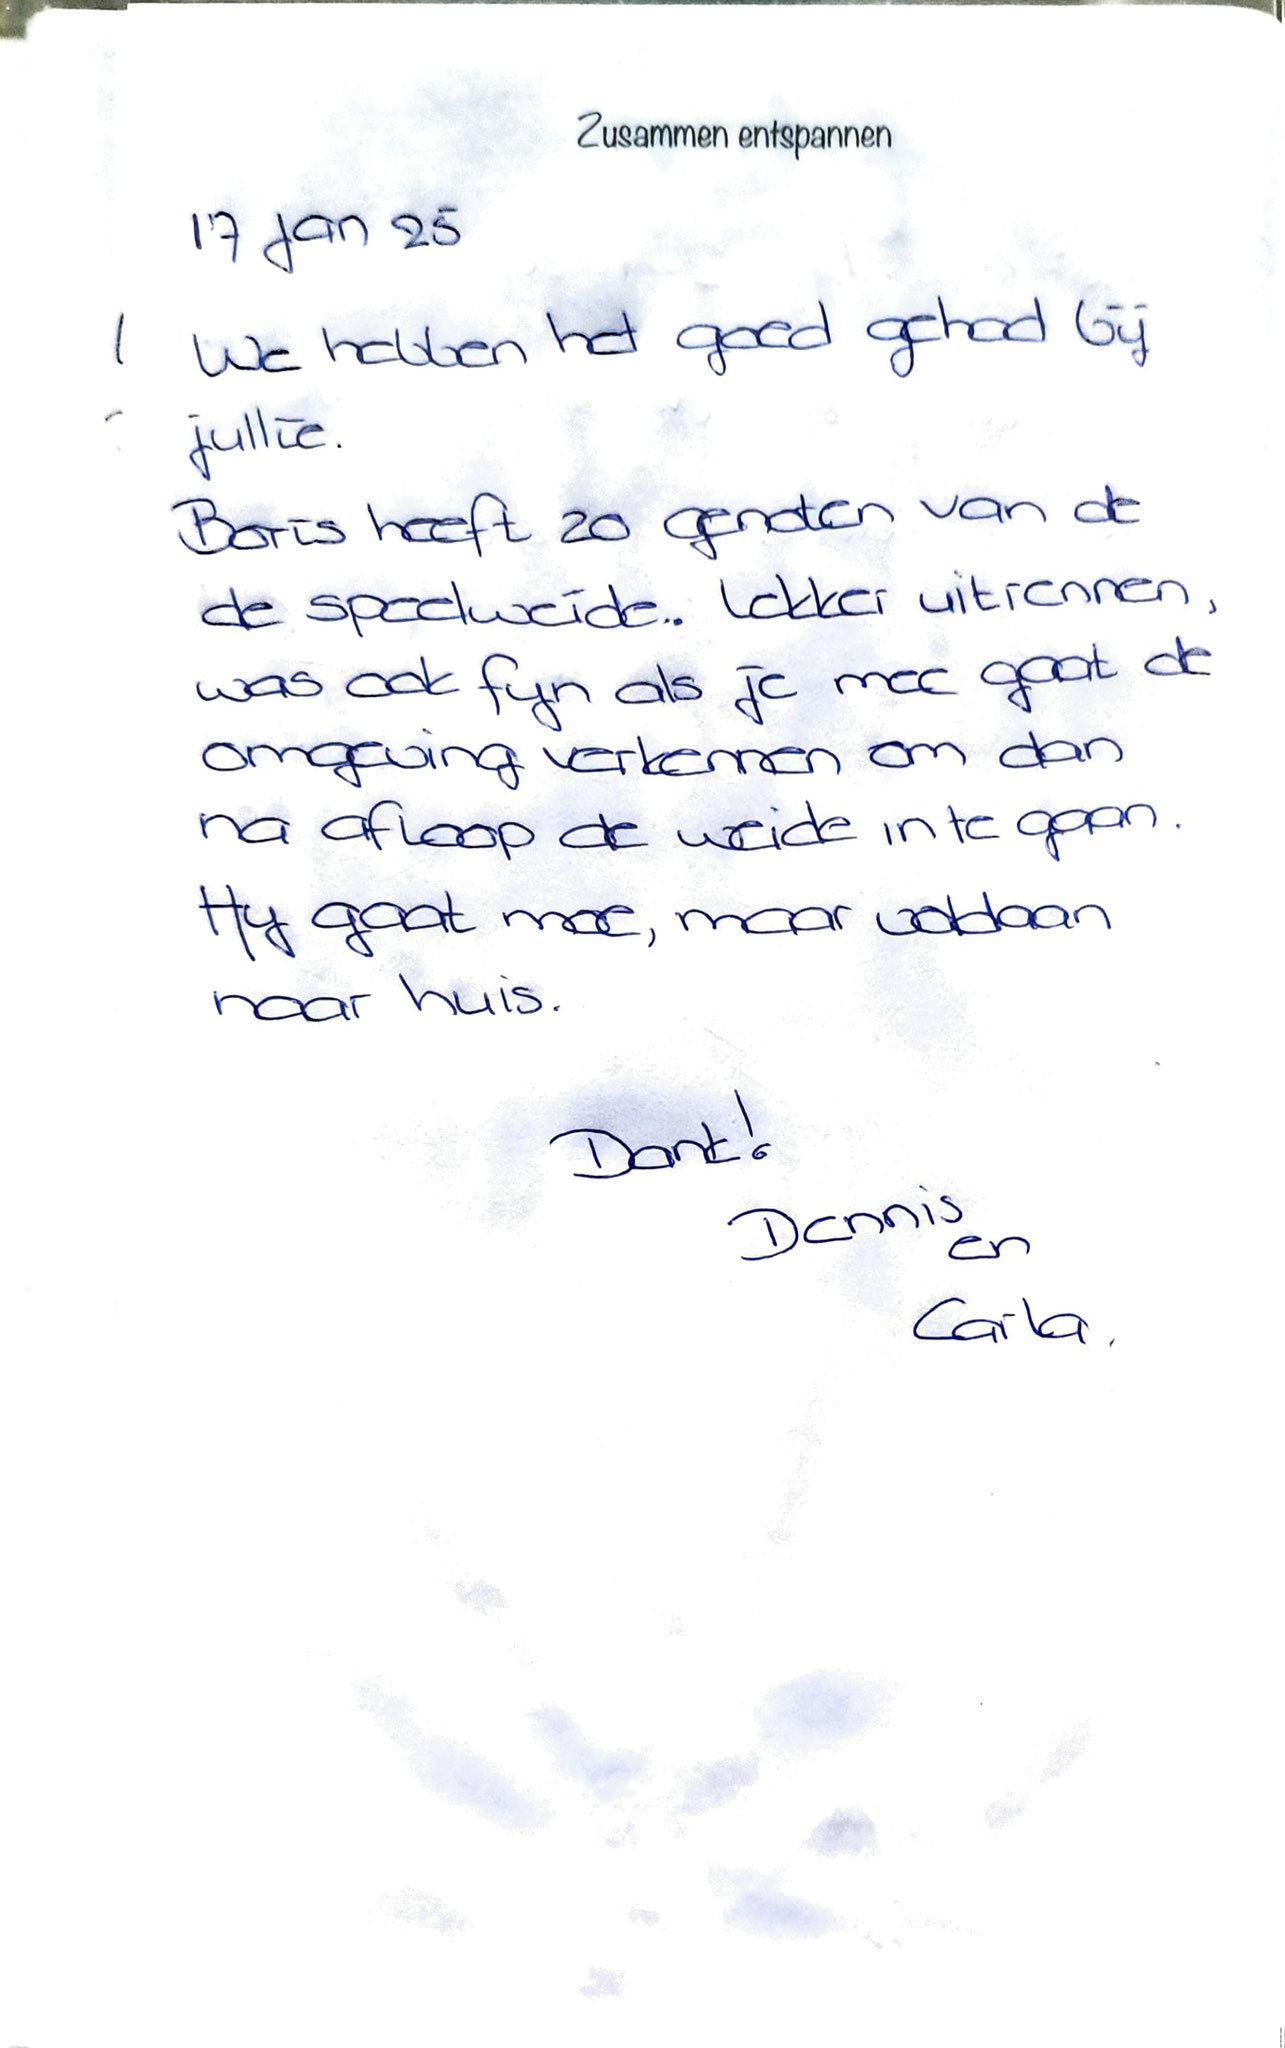 Zusammen entspannen
17 jan 25
We hebben het goed gehad bij
jullie.
Boris heeft zo genoten van de
de speelweide.. Lekker uitrennen,
was ook fijn als je mee gaat de
omgeving verkennen om dan
na afloop de weide in te gaan.
Hij gaat moe, maar voldaan
naar huis.
Dank!
Dennis
en
Carla.